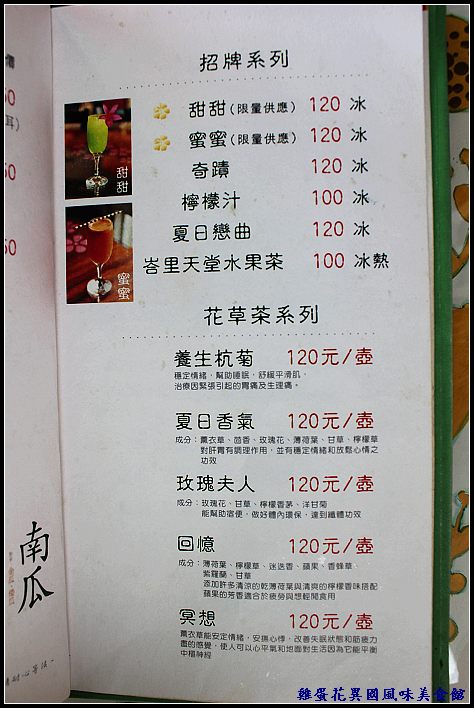 招牌系列
甜甜(限量供應) 120 冰
蜜蜜(限量供應) 120 冰
奇蹟 120 冰
檸檬汁 100 冰
夏日戀曲 120 冰
峇里天堂水果茶 100 冰熱
甜甜
蜜蜜
花草茶系列
養生杭菊 120元/壺
穩定情緒，幫助睡眠，舒緩平滑肌，
治療因緊張引起的胃痛及生理痛。
夏日香氣 120元/壺
成分：薰衣草、茴香、玫瑰花、薄荷葉、甘草、檸檬草
對肝胃有調理作用，並有穩定情緒和放鬆心情之
功效
玫瑰夫人 120元/壺
成分：玫瑰花、甘草、檸檬香茅、洋甘菊
能幫助宿便，做好體內環保，達到纖體功效
回憶 120元/壺
成分：薄荷葉、檸檬草、迷迭香、蘋果、香蜂草
紫羅蘭、甘草
添加許多清涼的乾薄荷葉與清爽的檸檬香味搭配
蘋果的芳香適合於疲勞與想輕閒食用
冥想 120元/壺
薰衣草能安定情緒，安撫心悸，改善失眠狀態和筋疲力
盡的感覺，使人可以心平氣和地面對生活因為它能平衡
中樞神經
南瓜
雞蛋花異國風味美食館